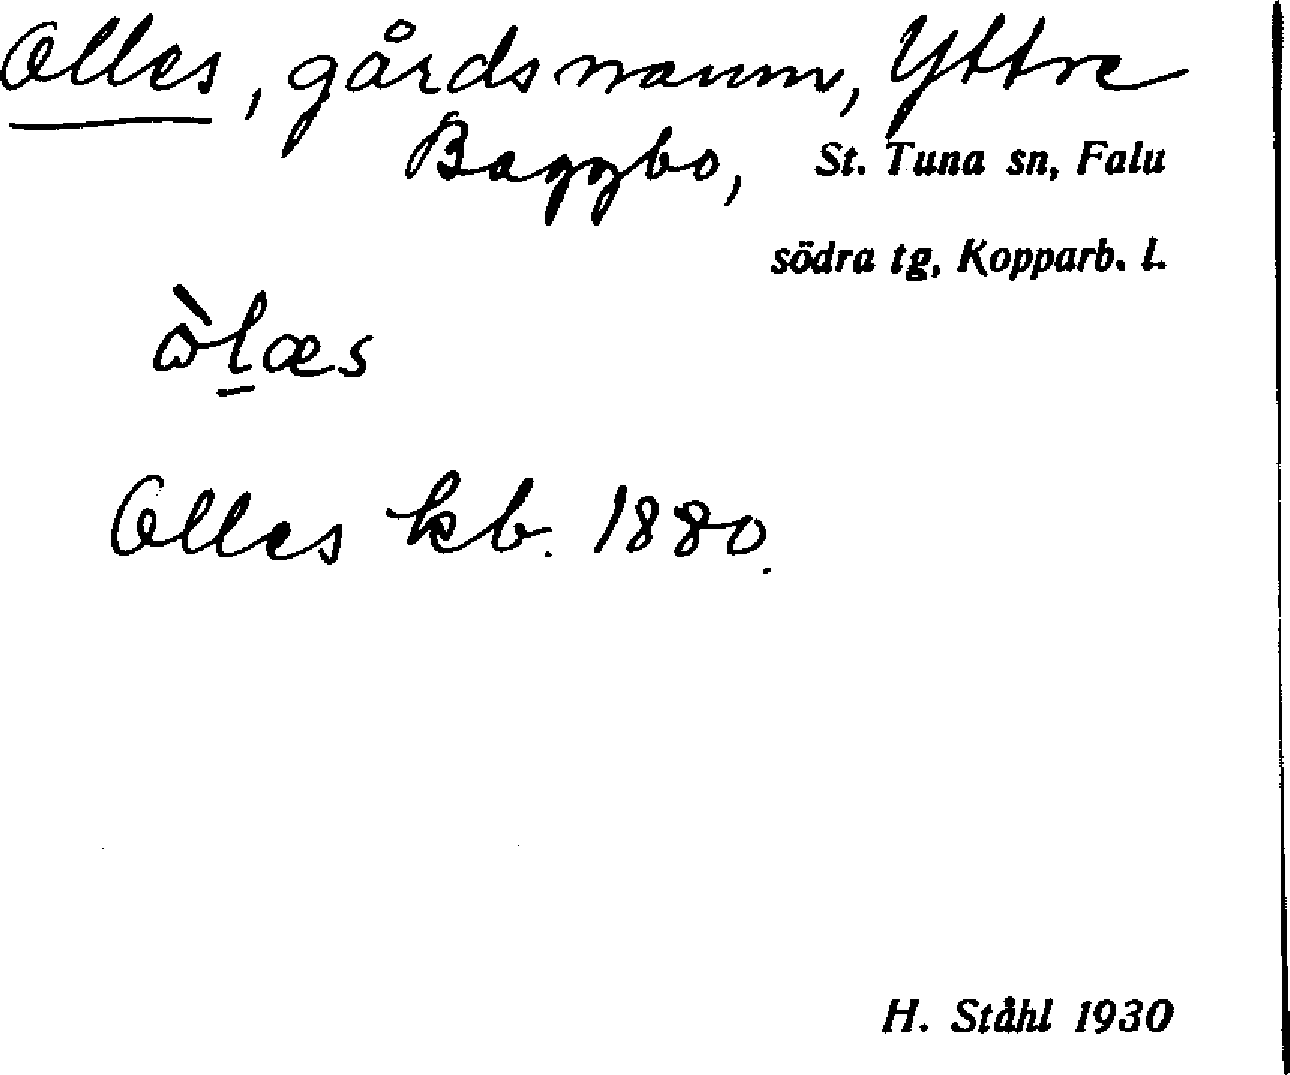 Olles, gårdsnamn, Yttre
Baggbo, St. Tuna sn, Falu
södra tg, Kopparb. l.
ὼl̠æs
Olles kb. 1880.
H. Ståhl 1930